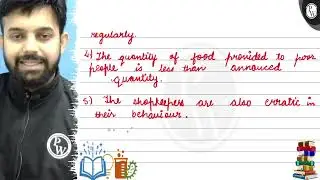 regularly.
4) The quantity of food provided to poor
people is less than annouced
quantity.
5) The shopkeepers are also erratic in
their behaviour.
P
W